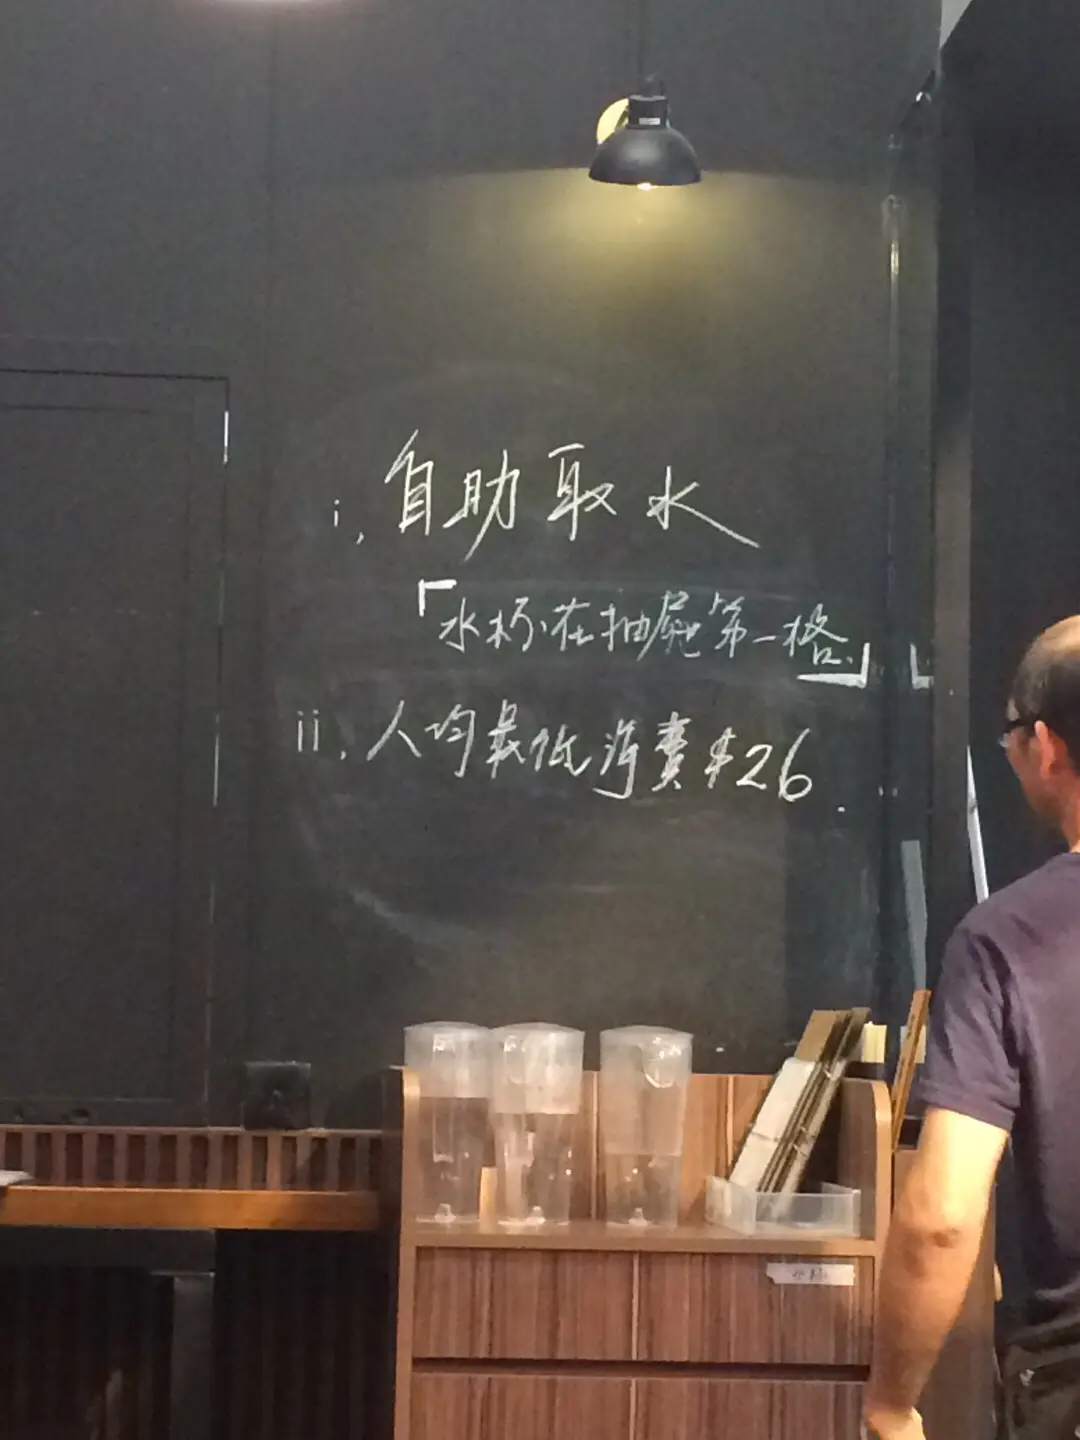 i, 自助取水
「水杯在抽屜第一格」
ii, 人均最低消費$26.
水杯